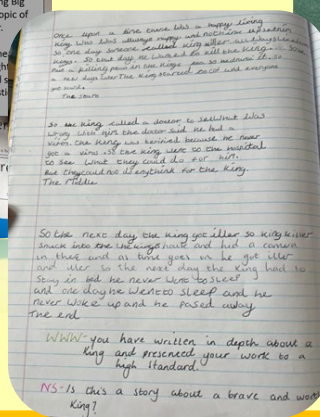 Once upon a time there was a happy living
King who was always happy and nothing upset him
so one day someone called King killer always
kings. So that day he wanted to kill the King. So
he put a killing in the kings so
a few days later The King started and everyone
The start
So the king called a doctor to see what was
wrong with him the doctor said he had a
virus. the King was terrified because he never
got a virus. so the King went to the hospital
to see what they could do for him.
But they could not do anything for the King.
The middle
So the next day the King got iller so King killer
snuck into the the kings house and hid a camera
in there and as time goes on he got iller
and iller so the next day the King had to
stay in bed he never went to sleep
and one day he went to sleep and he
never woke up and he pased away
The end
WWW- you have written in depth about a
king and presented your work to a
high standard.
NS- Is this a story about a brave and
King?